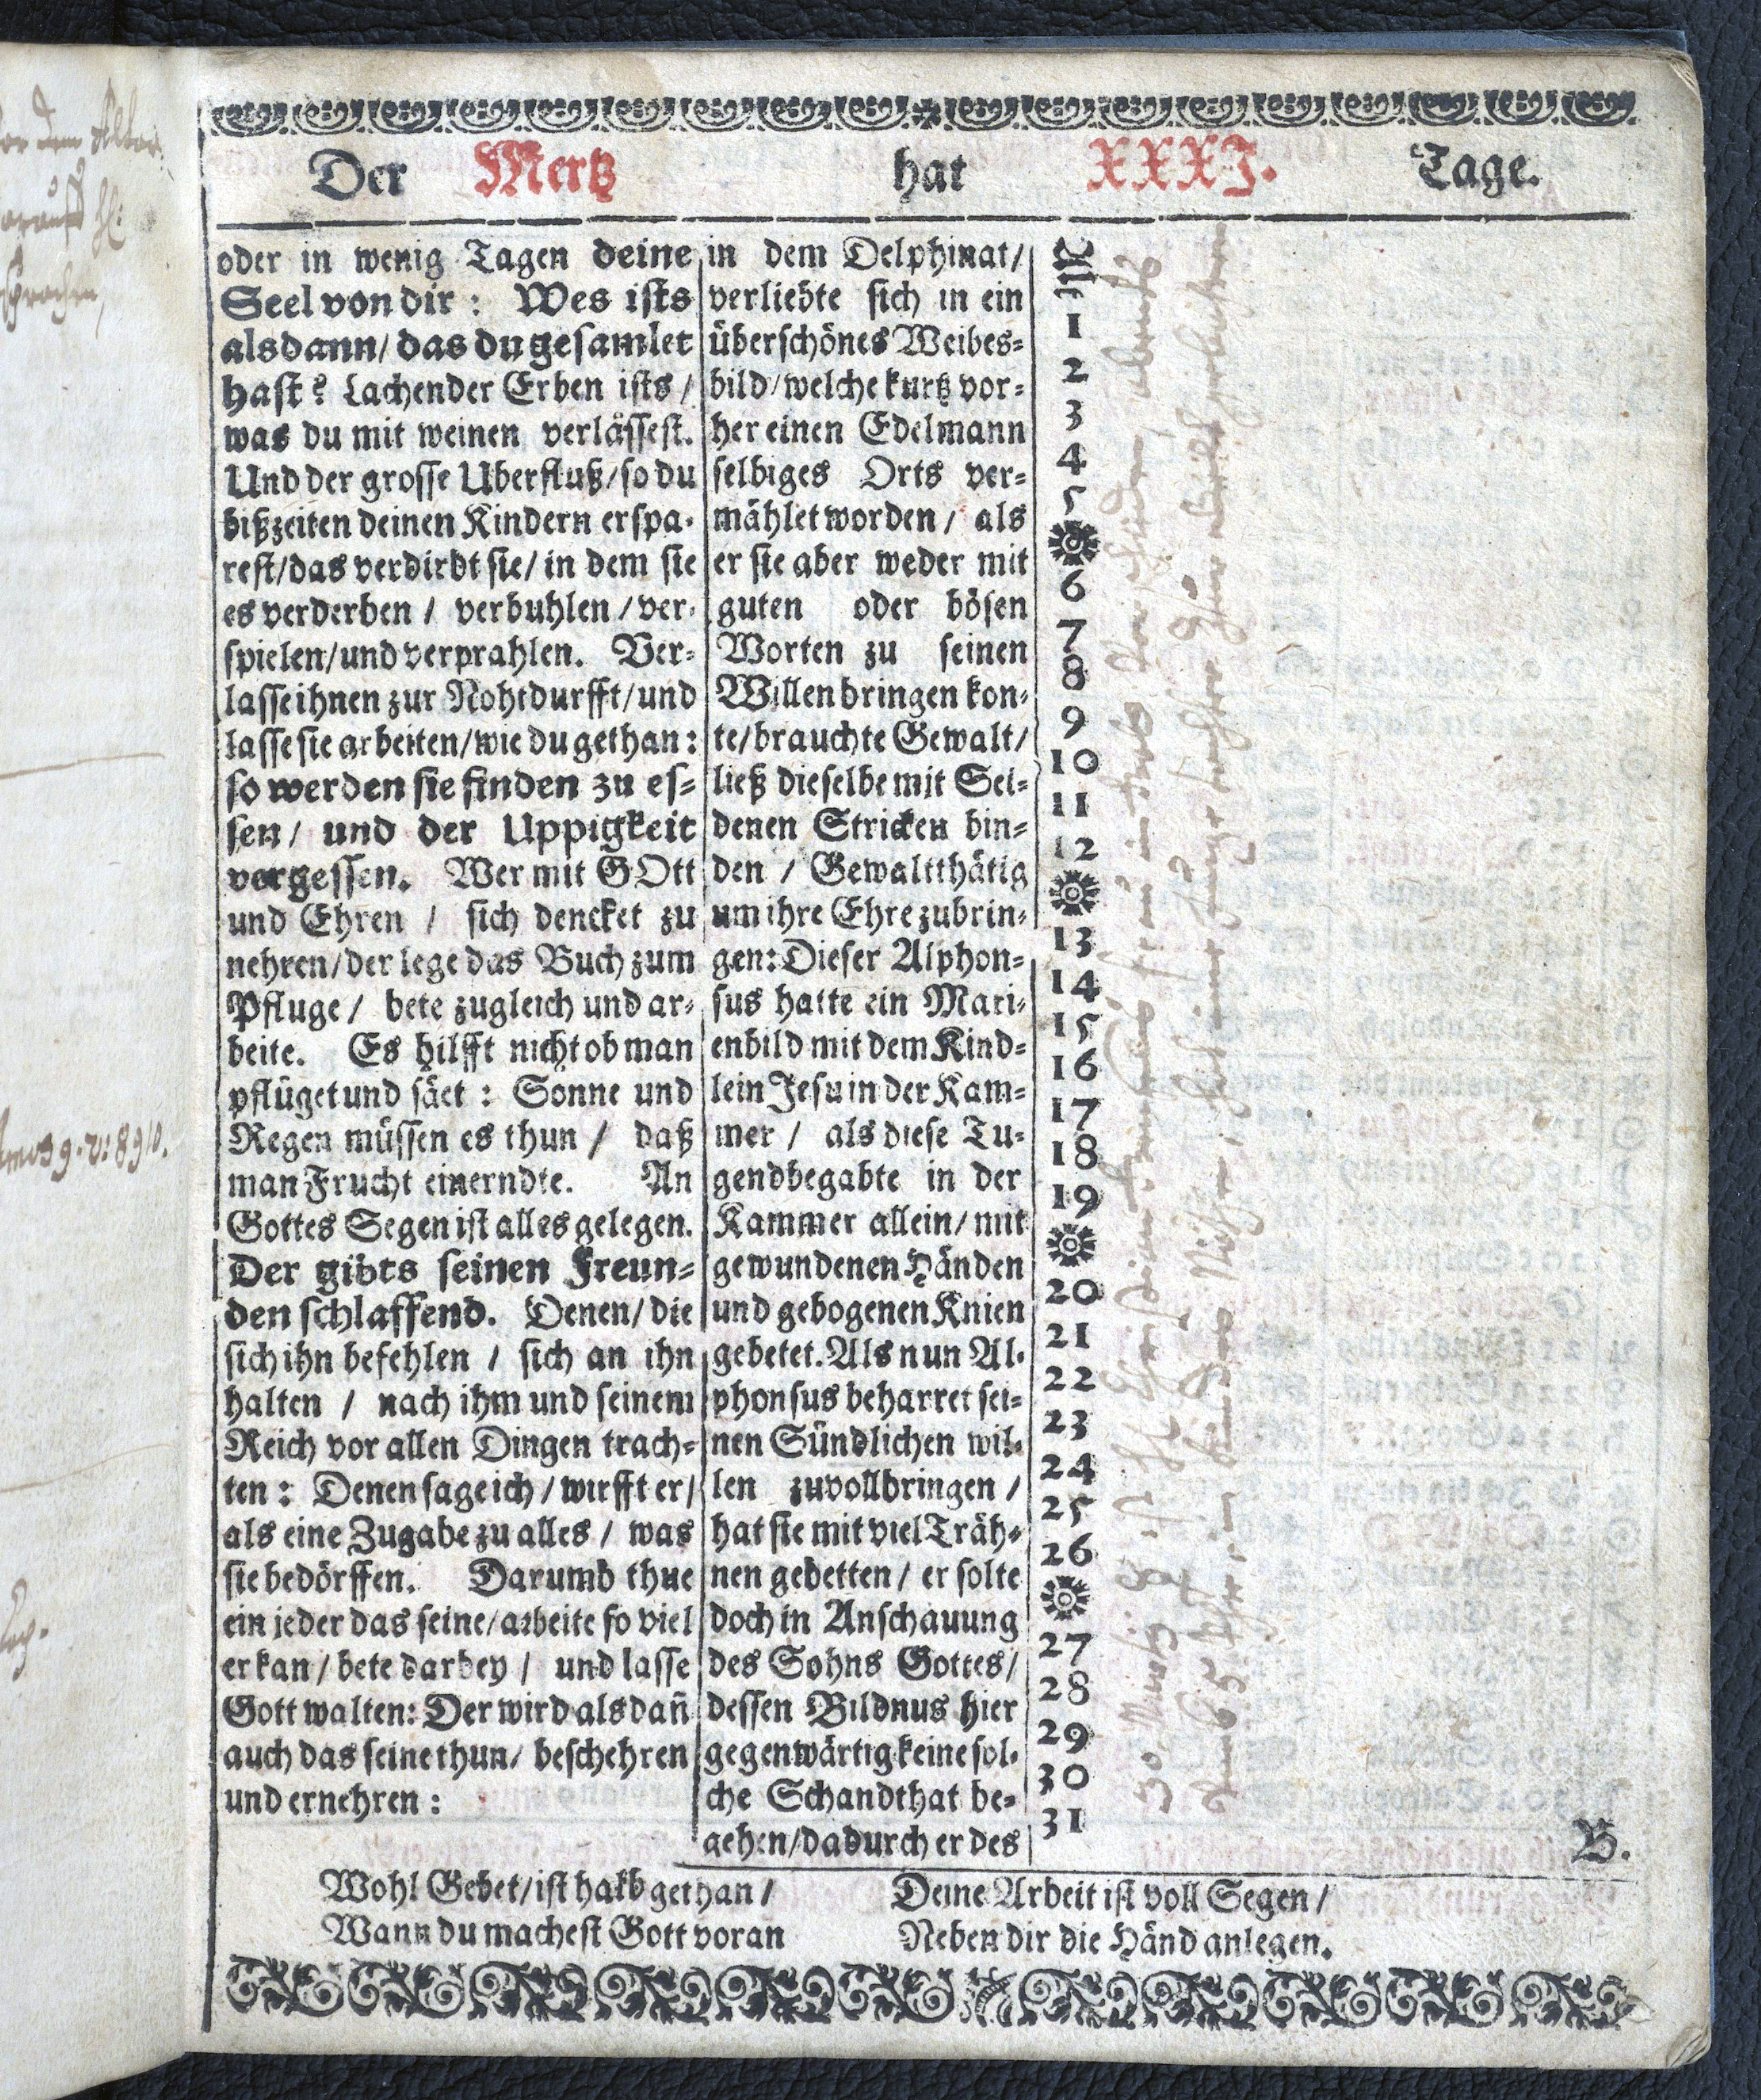 Der Mertz hat XXXI. Tage.
oder in wenig Tagen deine
Seel von dir: Wes ists
alsdann/ das du gesamlet
hast? Lachender Erben ists/
was du mit weinen verlässest.
Und der grosse Uberfluß/ so du
bißzeiten deinen Kindern erspa-
rest/ das verdirbt sie/ in dem sie
es verderben/ verbuhlen/ ver-
spielen/ und verprahlen. Ver-
lasse ihnen zur Nohtdurfft/ und
lasse sie arbeiten/ wie du gethan:
so werden sie finden zu es-
sen/ und der Uppigkeit
vergessen. Wer mit GOtt
und Ehren/ sich dencket zu
nehren/ der lege das Buch zum
Pfluge/ bete zugleich und ar-
beite. Es hilfft nicht ob man
pflüget und säet: Sonne und
Regen müssen es thun/ daß
man Frucht einerndte. An
Gottes Segen ist alles gelegen.
Der gibts seinen Freun-
den schlaffend. Denen/ die
sich ihn befehlen/ sich an ihn
halten/ nach ihm und seinem
Reich vor allen Dingen trach-
ten: Denen sage ich/ wirfft er/
als eine Zugabe zu alles/ was
sie bedörffen. Darumb thue
ein jeder das seine/ arbeite so viel
er kan/ bete darbey/ und lasse
Gott walten: Der wird als dañ
auch das seine thun/ beschehren
und ernehren:
in dem Delphinat/
verliebte sich in ein
überschönes Weibes-
bild/ welche kurtz vor-
her einen Edelmann
selbiges Orts ver-
mählet worden/ als
er sie aber weder mit
guten oder bösen
Worten zu seinen
Willen bringen kon-
te/ brauchte Gewalt/
ließ dieselbe mit Sei-
denen Stricken bin-
den/ Gewaltthätig
um ihre Ehre zubrin-
gen: Dieser Alphon-
sus hatte ein Mari-
enbild mit dem Kind-
lein Jesu in der Kam-
mer/ als diese Tu-
gendbegabte in der
Kammer allein/ mit
gewundenen Händen
und gebogenen Knien
gebetet. Als nun Al-
phonsus beharret sei-
nen Sündlichen wil-
len zuvollbringen/
hat sie mit viel Träh-
nen gebetten/ er solte
doch in Anschauung
des Sohns Gottes/
dessen Bildnus hier
gegenwärtig keine sol-
che Schandthat be-
gehen/ dadurch er des
1
2
3
4
5
6
7
8
9
10
11
12
13
14
15
16
17
18
19
20
21
22
23
24
25
26
27
28
29
30
31
B.
Wohl Gebet/ ist halb gethan/
Wann du machest Gott voran
Deine Arbeit ist voll Segen/
Neben dir die Händ anlegen.